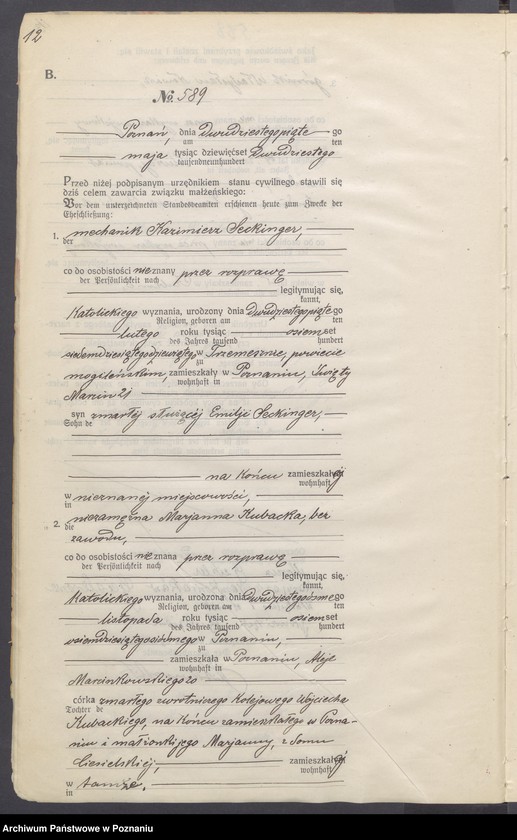 12
B.
No. 589
Poznań, dnia Dwudziestego piąte go
am ten
maja tysiąc dziewięćset Dwudziestego
tausendneunhundert
Przed niżej podpisanym urzędnikiem stanu cywilnego stawili się
dziś celem zawarcia związku małżeńskiego:
Vor dem unterzeichneten Standesbeamten erschienen heute zum Zwecke der
Eheschließung:
1. mechanik Kazimierz Seckinger,
der
co do osobistości nieznany przez rozprawę
der Persönlichkeit nach
legitymując się,
kannt,
Katolickiego wyznania, urodzony dnia Dwudziestego piąte go
Religion, geboren am ten
lutego roku tysiąc osiemset
des Jahres tausend hundert
siedemdziesiątego dziewiątego w Trzemesznie, powiecie
zu
mogileńskim, zamieszkały w Poznaniu, Święty
wohnhaft in
Marcin 21
syn zmarłej służącéj Emilji Seckinger,
Sohn de
na końcu zamieszkałéj
wohnhaft
w nieznanéj miejscowości,
in
2. niezamężna Marjanna Kubacka, bez
die
zawodu,
co do osobistości nieznana przez rozprawę
der Persönlichkeit nach
legitymując się,
kannt,
Katolickiego wyznania, urodzona dnia Dwudziestego ósme go
Religion, geboren am ten
listopada roku tysiąc osiemset
des Jahres tausend hundert
osiemdziesiątego ósmego w Poznaniu,
zu
zamieszkała w Poznaniu, Aleje
wohnhaft in
Marcinkowskiego 20
córka zmarłego zwrotniczego kolejowego Wojciecha
Tochter de
Kubackiego, na końcu zamieszkałego w Pozna-
niu i małżonki jego Marjanny, z domu
Ciesielskiéj, zamieszkałéj
wohnhaft
w tamże.
in
Archiwum Państwowe w Poznaniu